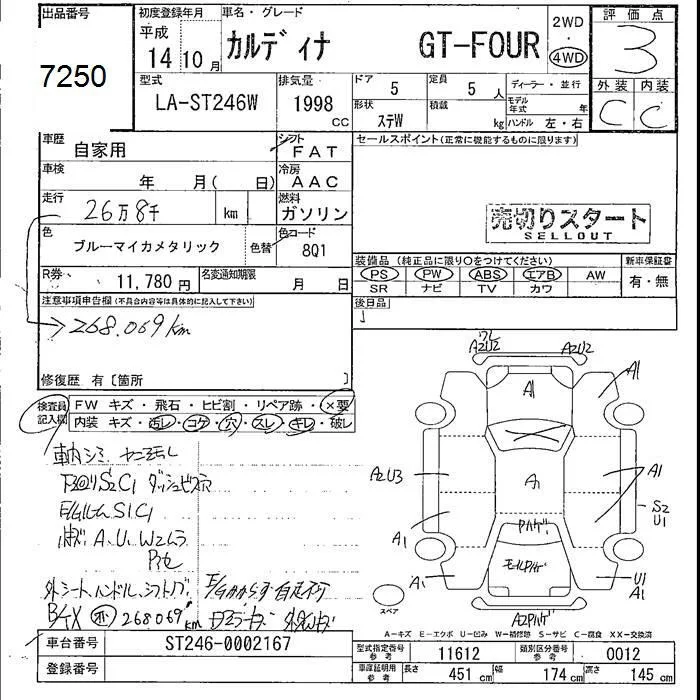 出品番号
7250
初度登録年月
平成
14 10月
車名・グレード
カルディナ GT-FOUR
2WD
・
4WD
評価点
3
外装 内装
C C
型式
LA-ST246W
排気量
1998
CC
ドア 5
定員 5人
ディーラー・並行
形状 ステW
積載 kg
モデル年式 年
ハンドル 左・右
車歴
自家用
シフト
FAT
セールスポイント(正常に機能するものに限ります)
車検
年 月( 日)
冷房
AAC
走行
26万8千 km
燃料
ガソリン
売切りスタート
SELLOUT
色
ブルーマイカメタリック
色替
色コード
8Q1
装備品(純正品に限り○をつけてください)
新車保証書
PS PW ABS エアB AW
有・無
SR ナビ TV カワ
R券
11,780円
名変通知期限
月 日
後日品
注意事項申告欄(不具合内容等は具体的に記入して下さい)
268.069km
修復歴 有〔箇所 〕
検査員記入欄
FW キズ・飛石・ヒビ割・リペア跡・×要
内装 キズ・汚レ・コゲ・穴・スレ・キレ・破レ
車内シミ
S1C1
A.U.
外シート、ハンドル、シフトノブ
268069km
A2U2 A2U2
A1 A1
A2U3 A1 A1
S2
U1
A1
A1 U1
A1
スペア
A2
A−キズ E−エクボ U−凹み W−補修跡 S−サビ C−腐食 XX−交換済
車台番号
ST246-0002167
登録番号
型式指定番号 参考
11612
類別区分番号 参考
0012
車庫証明用 参考
長さ 451 cm 幅 174 cm 高さ 145 cm